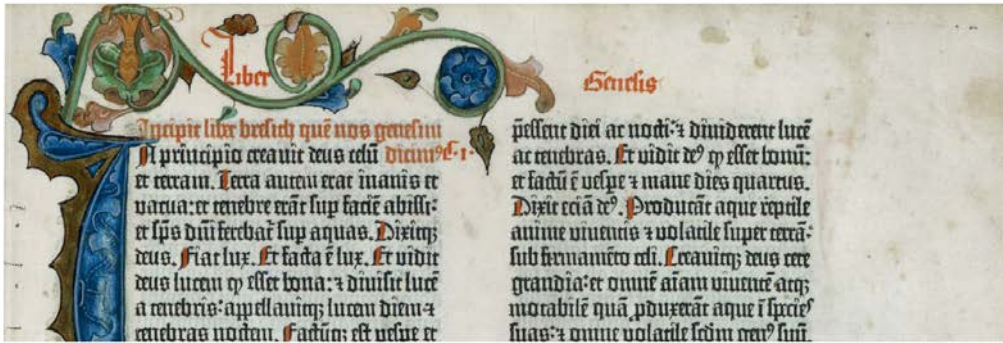 Liber
Incipit liber bresich quē nos genesim
IN principio creauit deus celū dicim⁹ C·1·
et terram. Terra autem erat inanis et
vacua: et tenebre erāt sup faciē abissi:
et sp̄s dn̄i ferebat̄ sup aquas. Dixitqꝫ
deus. Fiat lux. Et facta ē lux. Et vidit
deus lucem ꝙ esset bona: ⁊ diuisit lucē
a tenebris: appellauitqꝫ lucem diem ⁊
tenebras noctem. Factūqꝫ est vespe et
Genesis
p̄essent diei ac nocti: ⁊ diuiderent lucē
ac tenebras. Et vidit de⁹ ꝙ esset bonū:
et factū ē vespe ⁊ mane dies quartus.
Dixit eciā de⁹. Producāt aque reptile
anime viuentis ⁊ volatile super terrā:
sub firmamēto celi. Creauitqꝫ deus cete
grandia: et omnē aīam viuentē atqꝫ
motabilē quā pduxerāt aque ī species
suas: ⁊ omne volatile scdm gen⁹ suū.